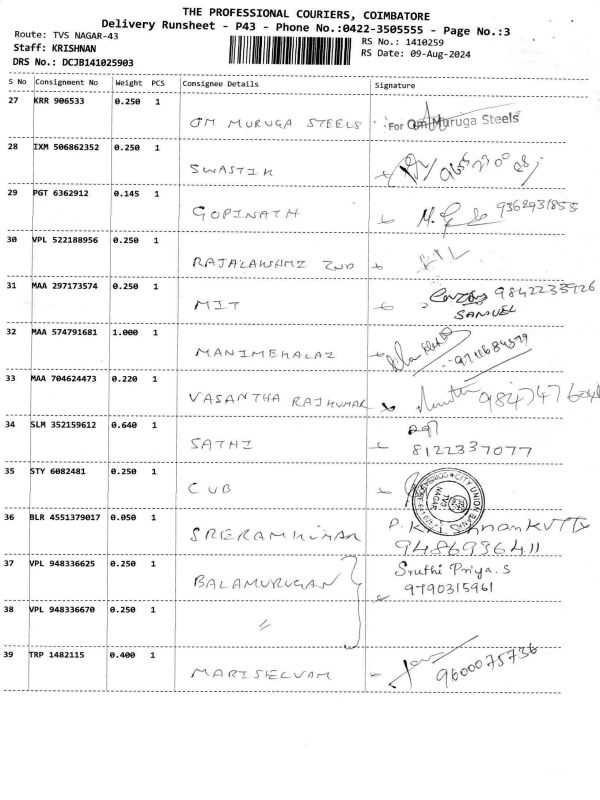 THE PROFESSIONAL COURIERS, COIMBATORE
Delivery Runsheet - P43 - Phone No.:0422-3505555 - Page No.:3
Route: TVS NAGAR-43
RS No.: 1410259
Staff: KRISHNAN
RS Date: 09-Aug-2024
DRS No.: DCJB141025903
S No Consignment No Weight PCS Consignee Details Signature
27 KRR 906533 0.250 1
OM MURUGA STEELS For Om Muruga Steels
28 IXM 506862352 0.250 1
SWASTIK
29 PGT 6362912 0.145 1
GOPINATH 9362931855
30 VPL 522188956 0.250 1
RAJALAKSHMI IND
31 MAA 297173574 0.250 1
MIT 9842233926
SAMUEL
32 MAA 574791681 1.000 1
MANIMEHALAI
33 MAA 704624473 0.220 1
VASANTHA RAJKUMAR
34 SLM 352159612 0.640 1
SATHI 8122337077
35 STY 6082481 0.250 1
CUB CITY UNION BANK TVS NAGAR
36 BLR 4551379017 0.050 1
SRERAMKUMAR
9486936411
37 VPL 948336625 0.250 1 Sruthi Priya.S
BALAMURUGAN 9790315961
38 VPL 948336670 0.250 1
〃
39 TRP 1482115 0.400 1
MARISELVAM 9600075736